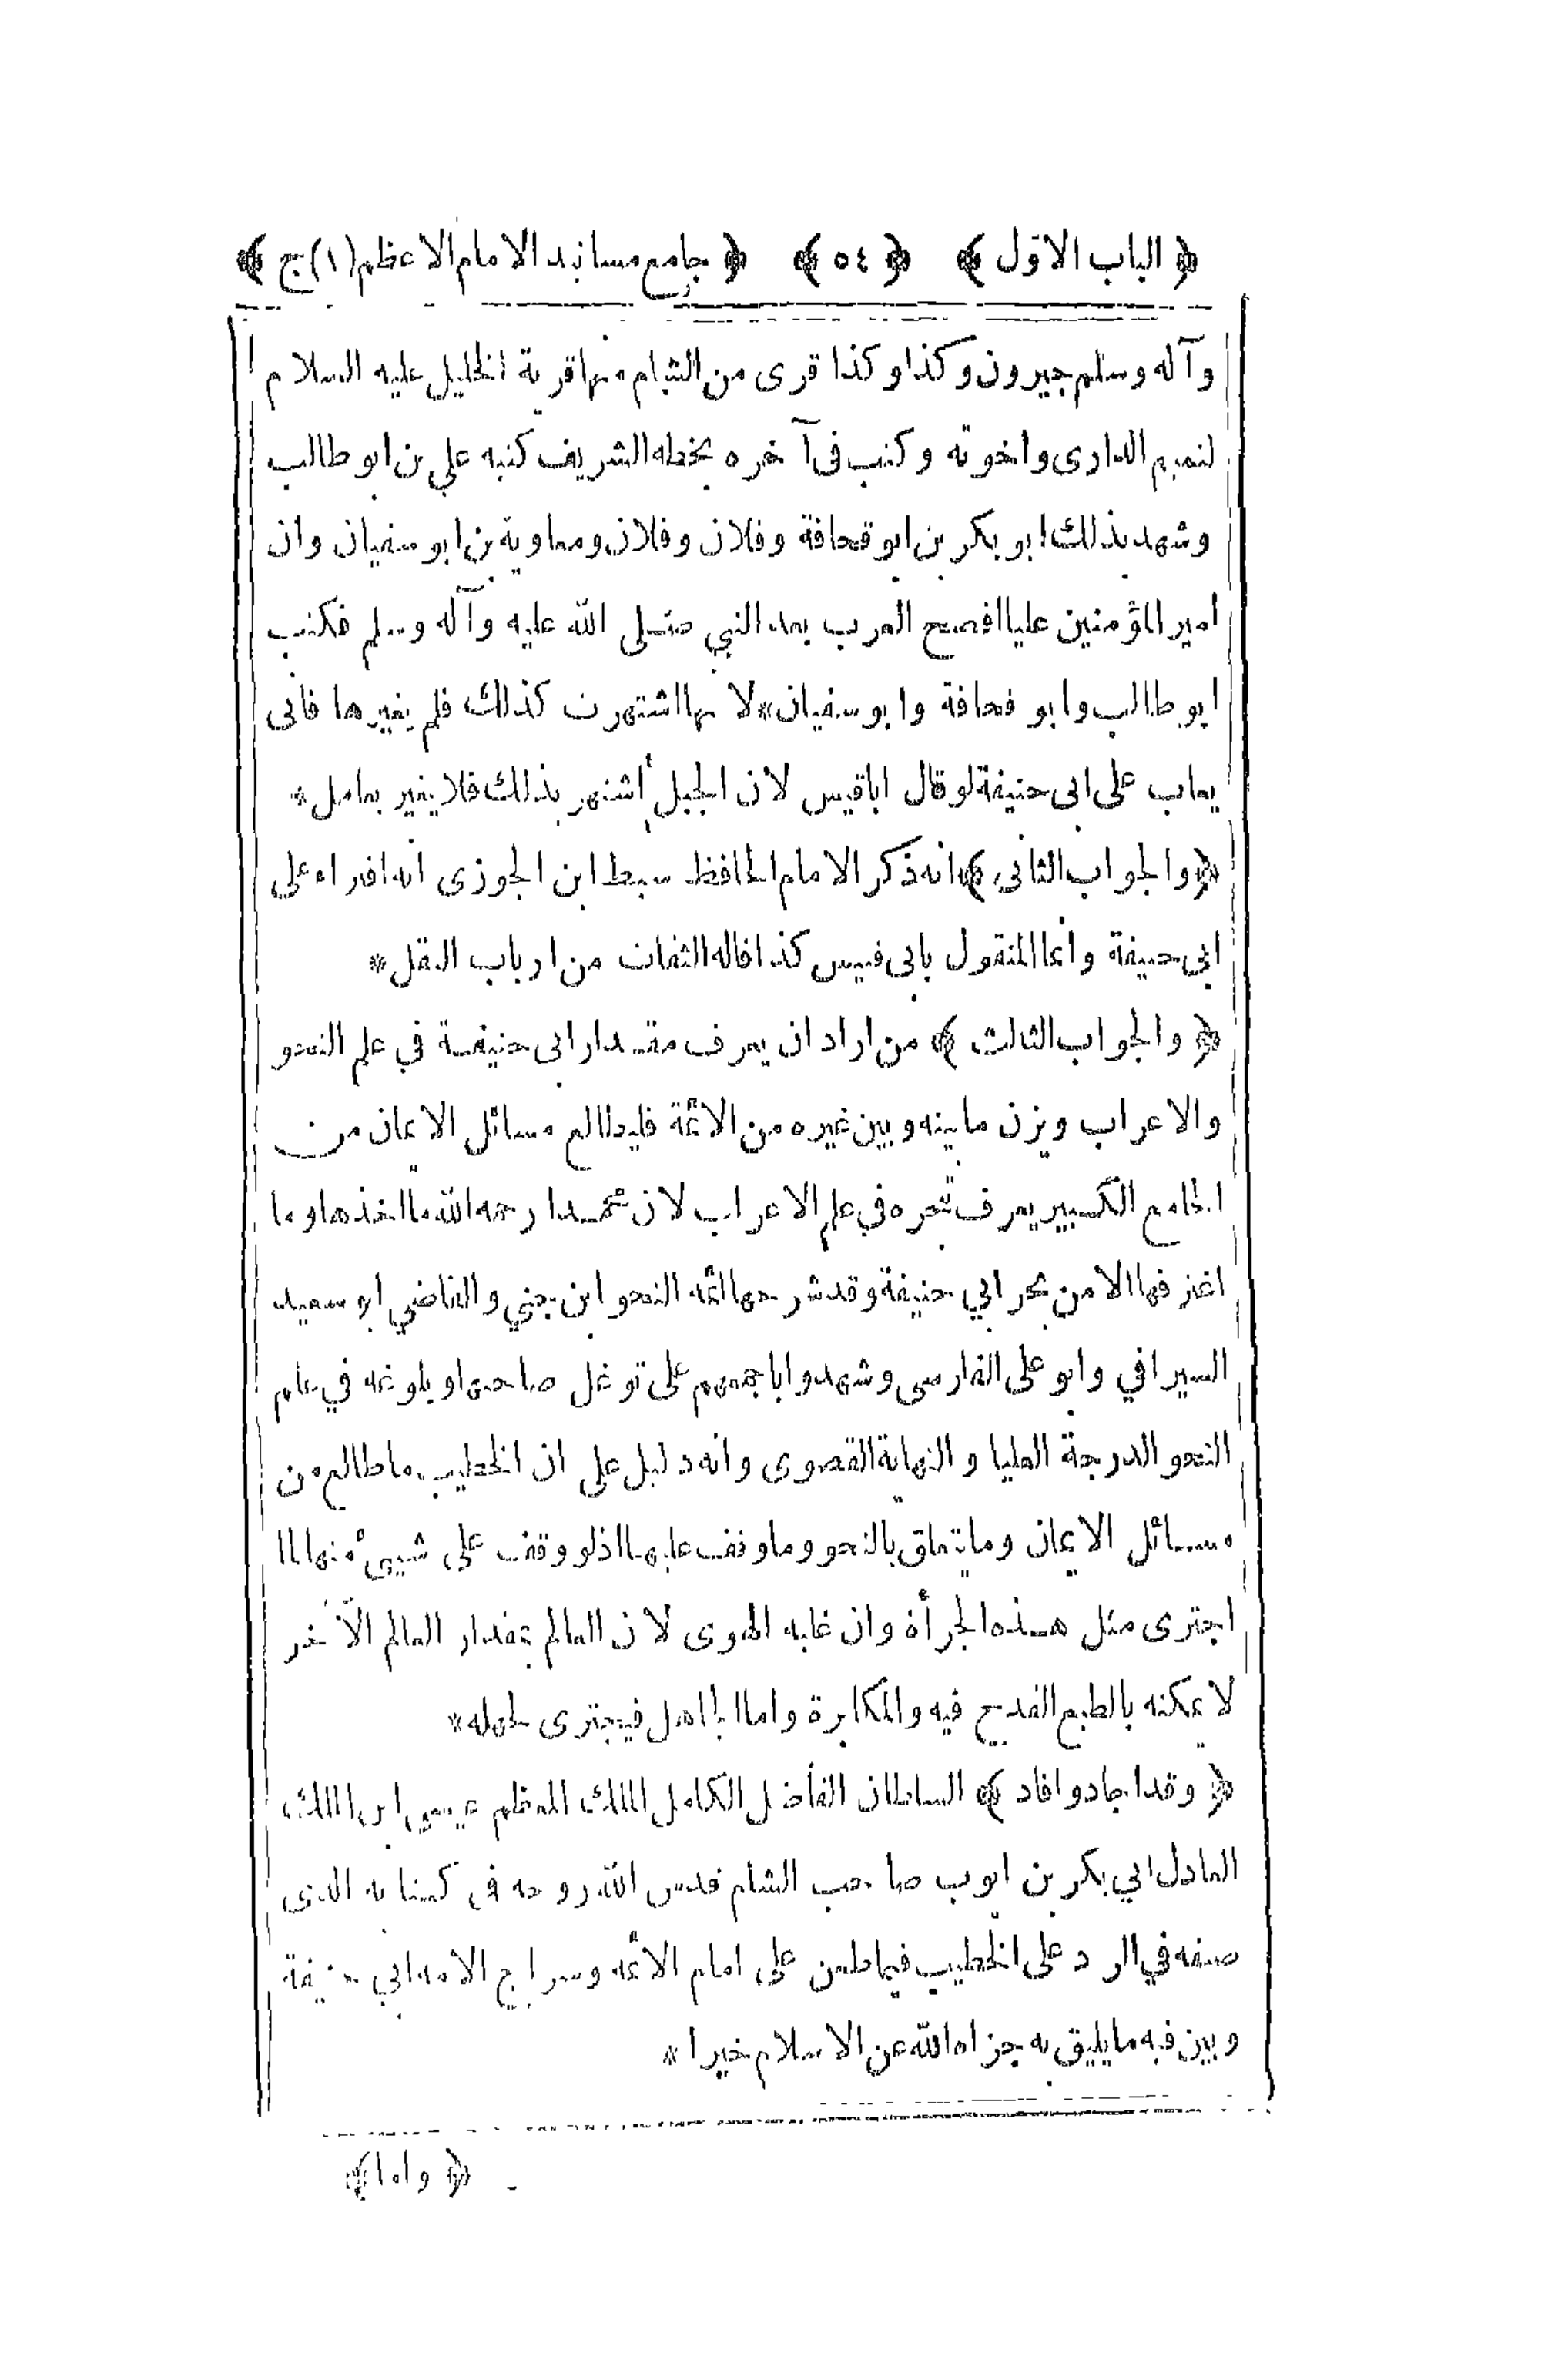 ﴿ الباب الاوّل ﴾ ﴿ ٥٤ ﴾ ﴿ جامع مسانيد الامام الاعظم (١) ج ﴾
وآله وسلم جيرون وكذا وكذا قرى من الشام منها قرية الخليل عليه السلام
لتميم الدارى واخوته وكتب فى آخره بخطه الشريف كتبه علي بن ابو طالب
وشهد بذلك ابو بكر بن ابو قحافة وفلان وفلان ومعاوية بن ابو سفيان وان
امير المؤمنين عليا افصح العرب بعد النبي صلى الله عليه وآله وسلم فكتب
ابو طالب وابو قحافة وابو سفيان * لانها اشتهرت كذلك فلم يغيرها فانى
يعاب على ابى حنيفة لو قال اباقيس لان الجبل أشتهر بذلك فلا يغير بعامل *
﴿ والجواب الثانى ﴾ انه ذكر الامام الحافظ سبط ابن الجوزى انه افتراء على
ابى حنيفة وانما المنقول بابى قبيس كذا قاله الثقات من ارباب النقل *
﴿ والجواب الثالث ﴾ من اراد ان يعرف مقدار ابى حنيفة في علم النحو
والاعراب ويزن ما بينه وبين غيره من الائمّة فليطالع مسائل الايمان من
الجامع الكبير يعرف تبحره في علم الاعراب لان محمدا رحمه الله ما اتخذها وما
اغترفها الا من بحر ابي حنيفة وقد شرحها ائمّه النحو ابن جني والقاضي ابو سعيد
السيرافي وابو على الفارسى وشهدوا باجمعهم على توغل صاحبها وبلوغه في علم
النحو الدرجة العليا والنهاية القصوى وانه دليل على ان الخطيب ما طالع من
مسائل الايمان وما يتعلق بالنحو وما وقف عليها اذ لو وقف على شيئ منها لما
اجترى مثل هذه الجرأة وان غلبه الهوى لان العالم بمقدار العالم الآخر
لا يمكنه بالطبع القدح فيه والمكابرة واما الجاهل فيجترى لجهله *
﴿ وقد اجاد وافاد ﴾ السلطان الفاضل الكامل الملك المعظم عيسى ابن الملك
العادل ابي بكر بن ايوب صاحب الشام قدس الله روحه فى كتابه الذى
صنفه في الرد على الخطيب فيما طعن على امام الائمّه وسراج الامه ابي حنيفة
وبين فيه ما يليق به جزاه الله عن الاسلام خيرا *
﴿ واما ﴾